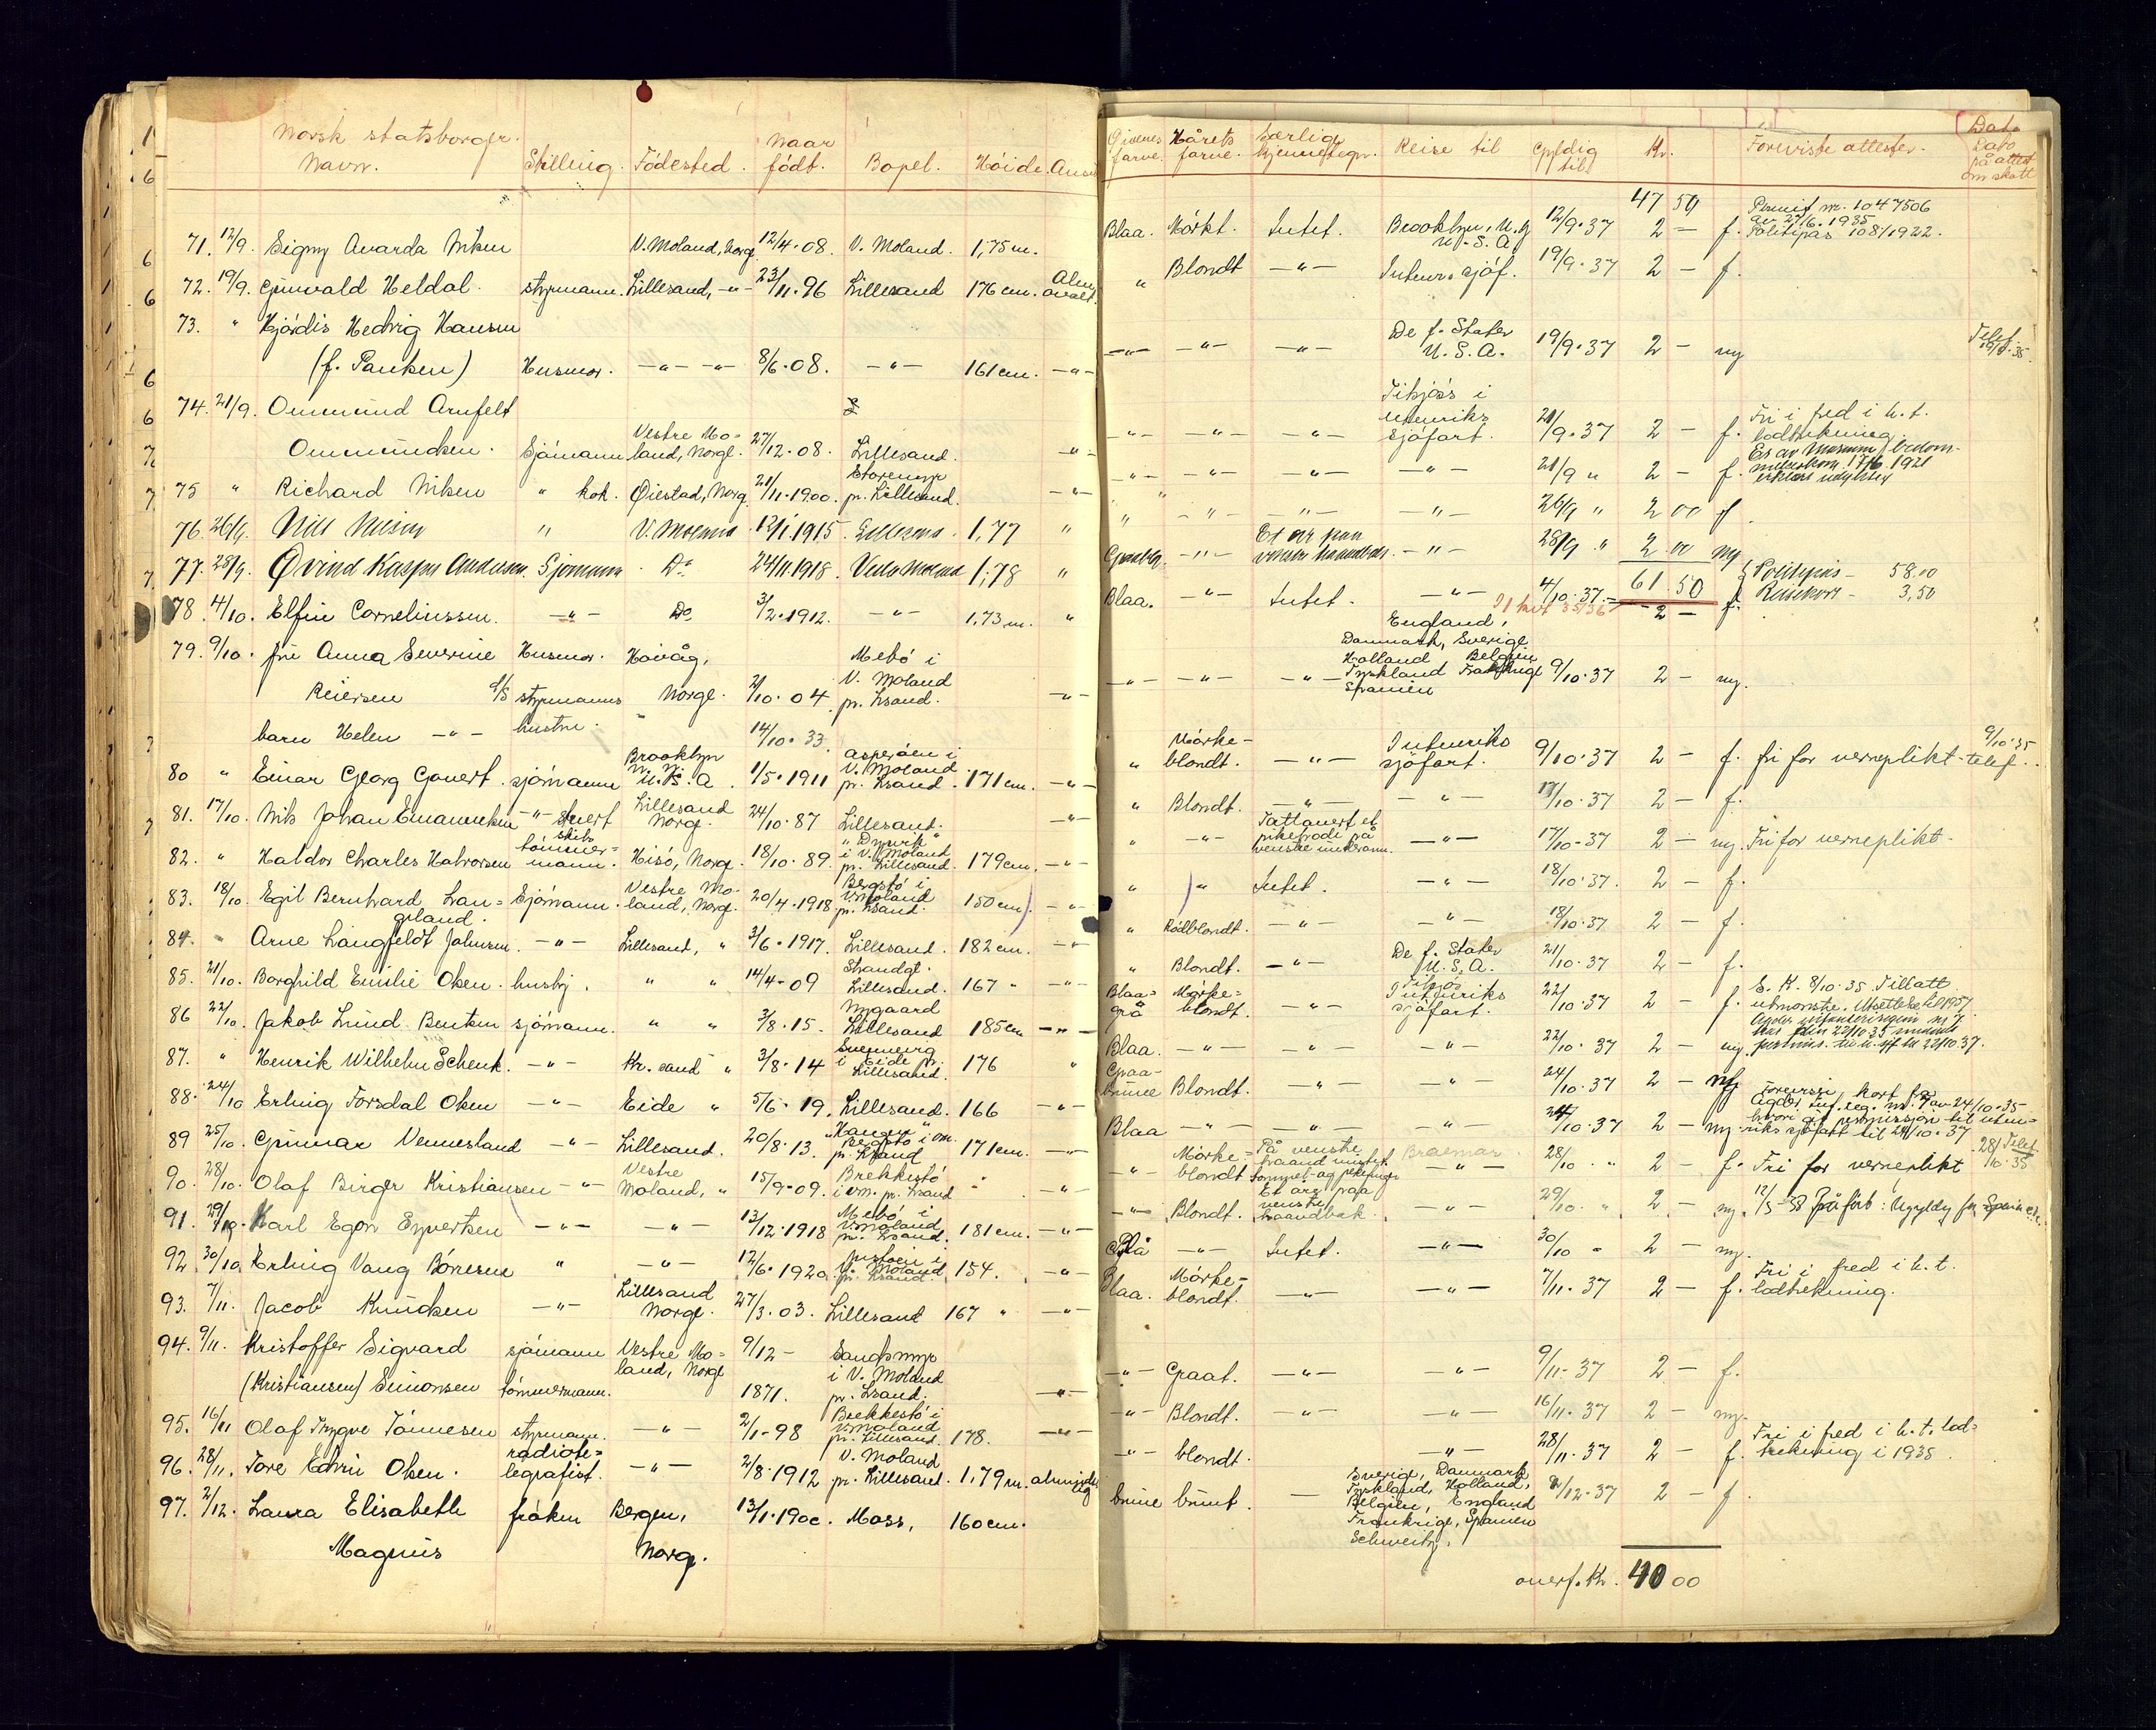 Norsk statsborger.
Navn. Stilling. Födested. Naar födt. Bopel. Höide.
71. 12/9. Signy Avarda Niksen V. Moland, Norge 12/4-08. V. Moland. 1,75 m.
72. 19/9. Gunvald Heldal. styrmann. Lillesand, -"- 23/11-96 Lillesand 176 cm. Alm. ovalt.
73. " Hjördis Hedvig Hansen
(f. Pauken) Husmor. -"- -"- 8/6-08. -"- 161 cm. -"-
74. 21/9. Ommund Arnfelt
Ommundsen. Sjömann Vestre Mo=
land, Norge. 27/12-08. Lillesand. -"-
75 " Richard Niksen " kok. Öiestad, Norg. 21/11-1900. Storemyr
pr. Lillesand. -"-
76 26/9. Nils Nilsen " V. Moland 12/1.1915. Lillesand. 1,77 "
77. 28/9. Øvind Kaspar Andersen. Sjömann Do 24/11.1918. Vestre Moland 1,78 "
78 4/10. Elfin Corneliussen. -"- Do 3/2-1912. -"- 1,73 m. "
79. 9/10. fru Anna Severine Husmor. Hövåg, Mebö i
Reiersen styrmanns Norge. 2/10-04. V. Moland
pr. Lsand. -"-
barn Helen -"- hustru. 14/10-33.
80 " Einar Georg Govert. sjömann Brooklyn
N.Y.
U.S.A. 1/5-1911 Asperöen i
V. Moland
pr. Lsand. 171 cm. -"-
81. 17/10. Nils Johan Emanuelsen -"- stuert Lillesand
Norge. 24/10-87 Lillesand. -"-
82. " Haldor Charles Halvorsen skibs
tömmer=
mann. Hisö, Norge. 18/10-89. i V. Moland
pr. Lillesand. 179 cm. -"-
83. 18/10. Egil Bernhard Lan=
geland. Sjömann. Vestre Mo=
land, Norg. 20/4-1918 Bergstö i
V. Moland
pr. Lsand. 150 cm. -"-
84. " Arne Langfeldt Johnsen. -"- Lillesand, " 3/6-1917. Lillesand. 182 cm. -"-
85. 21/10. Borghild Emilie Olsen. husbj. " " 14/4-09 Strandgt.
Lillesand. 167 "
86 22/10. Jakob Lund Bentsen sjömann. " " 3/8-15. Nygaard
Lillesand 185 cm -"-
87. " Henrik Wilhelm Schenk. -"- Kr.sand " 3/8-14 i Eide pr.
Lillesand. 176 "
88. 24/10 Erling Torsdal Olsen -"- Eide " 5/6-19. Lillesand. 166 -"-
89 25/10. Gunnar Vennesland -"- Lillesand. 20/8-13. Bergstö i vm.
pr. Lsand 171 cm. -"-
90. 28/10. Olaf Birger Kristiansen -"- Vestre
Moland, " 15/9-09. Brekkestö
i vm. pr. Lsand " -"-
91. 29/10. Karl Egon Eyvertsen -"- -"- 13/12-1918 Mebö i
V. Moland
pr. Lsand. 181 cm. -"-
92. 30/10. Erling Vang Börresen " -"- 12/6-1920. V. Moland
pr. Lsand 154. -"-
93. 7/11. Jacob Knudsen -"- Lillesand
Norge. 27/3-03. Lillesand 167 " -"-
94. 9/11. Kristoffer Sigvard sjömann Vestre Mo=
land, Norge 9/12- Sandsmyr
(Kristiansen) Simonsen tömmermann. 1871. i V. Moland
pr. Lsand. -"-
95. 16/11 Olaf Trygve Tönnesen styrmann. -"- 2/1-98 Brekkestö i
V. Moland
pr. Lillesand. 178. -"-
96. 28/11. Tore Edvin Olsen. radiote=
legrafist. -"- 2/8-1912 V. Moland
pr. Lillesand. 1,79 m. almindelig
97. 2/12. Laura Elisabeth fröken Bergen, 13/1-1900. Moss, 160 cm.
Magnus Norge.
Öinenes farve. Hårets farve. Særlige kjennetegn. Reise til Gyldig til Kr. Foreviste attester. Dato
Dato
på attest
om skatt
47 50
Blaa. Mörkt. Intet. Brooklyn, N.Y
U.S.A. 12/9-37 2 - f. Permit nr. 1047506
av 27/6.1935
Politipas 108/1922.
" Blondt -"- Intenr. sjöf. 19/9-37 2 - f.
-"- -"- -"- De f. Stater
U.S.A. 19/9-37 2 - ny Telef.
19/9-35.
-"- -"- -"- Tilsjös i
utenriks
sjöfart. 21/9-37 2 - f. Fri i fred i h.t.
lodtrekning.
-"- -"- -"- -"- 21/9 " 2 - f. 17/6.1921
" -"- -"- -"- 26/9 " 2 00 f.
Graablå. -"- Et arr paa
venstre haandledd. -"- 28/9 " 2.00 ny
Blaa. -"- Intet. -"- 4/10-37. 61 50 Politipas - 58.00
Reisekort - 3,50
- 2 - f.
England,
Danmark, Sverige
Holland Belgien
Tyskland Frankrige
Spanien
-"- -"- -"- 9/10-37 2 - ny.
" Mörke-
blondt. -"- Intenriks
sjöfart. 9/10-37 2 - f. fri for verneplikt - telef. 9/10-35
" Blondt. -"- -"- 17/10-37 2 - f.
" -"- Tattouert et
pikehode på
venstre underarm. -"- 17/10-37 2 - ny. Fri for verneplikt -
" " Intet. -"- 18/10-37. 2 - f.
" Rödblondt. -"- -"- 18/10-37 2 - f.
" Blondt. -"- De f. Stater
U.S.A. 21/10-37 2 - f.
Blaa=
grå Mörke=
blondt. -"- Tilsjös
Intenriks
sjöfart. 22/10-37 2 - f. E.K. 8/10-35. Tillatt
utmönstre.
Blaa. -"- -"- -"- 22/10-37 2 - ny.
Graa-
brune Blondt. -"- -"- 24/10-37 2 - ny
Blaa -"- -"- -"- 24/10-37 2 - ny. Forevist kort fra
Agder inf. reg. nr. 7 av 24/10-35
hvori git permissjon til uten=
riks sjöfart til 24/10-37
-"- Mörke=
blondt På venstre
haand mistet
tommel- og pekefinger Braemar.
-"- 28/10 " 2 - f. Fri for verneplikt 28/10-35 Telef.
-"- Blondt. Et arr paa
venstre
haandbak. -"- 29/10. " 2 - ny. 12/3-38 Påförb: Ugyldig for Spania
Blå -"- Intet. -"- 30/10 " 2 - ny.
Blaa. Mörke=
blondt. -"- -"- 7/11-37 2 - f. Fri i fred i h.t.
lodtrekning.
-"- Graat. -"- -"- 9/11-37 2 - f.
-"- Blondt. -"- -"- 16/11-37 2 - ny.
-"- blondt. -"- 28/11-37 2 - f. Fri i fred i h.t. lod=
trekning i 1935.
brune brunt. - Sverige, Danmark
Tyskland, Holland,
Belgien, England
Frankrige, Spanien
Schweitz. 2/12-37 2 - f.
overf. Kr. 40 00